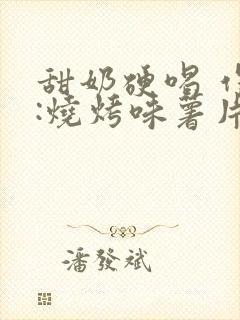 甜奶硬唱
:燒烤味薯片
潘發斌